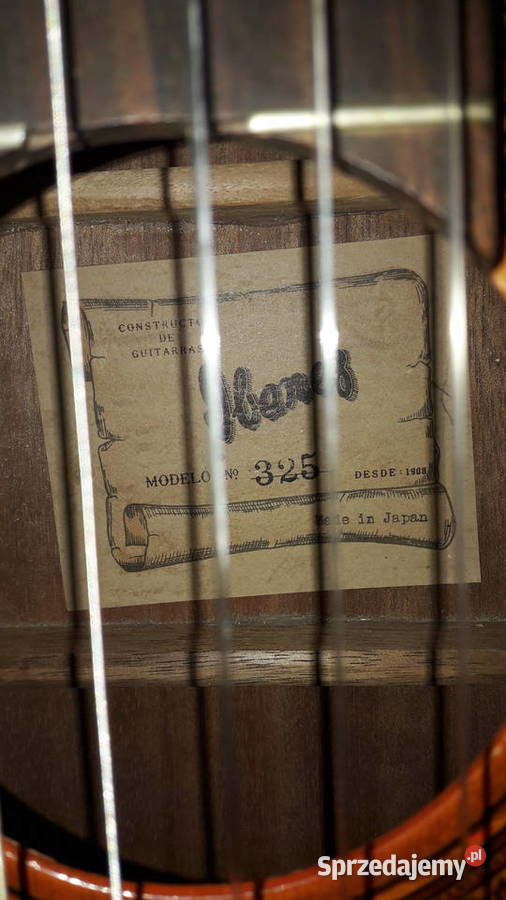 CONSTRUCTO
DE
GUITARRAS
Ibanez
MODELO Nº 325
DESDE: 1908
Made in Japan
Sprzedajemy.pl